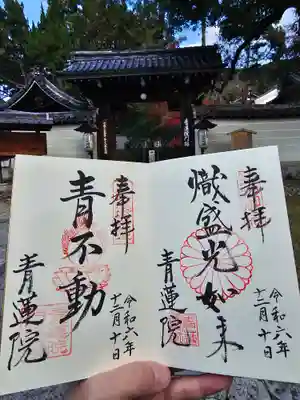 奉拝
熾盛光如来
青蓮院
令和六年
十二月十日
奉拝
青不動
青蓮院
令和六年
十二月十日